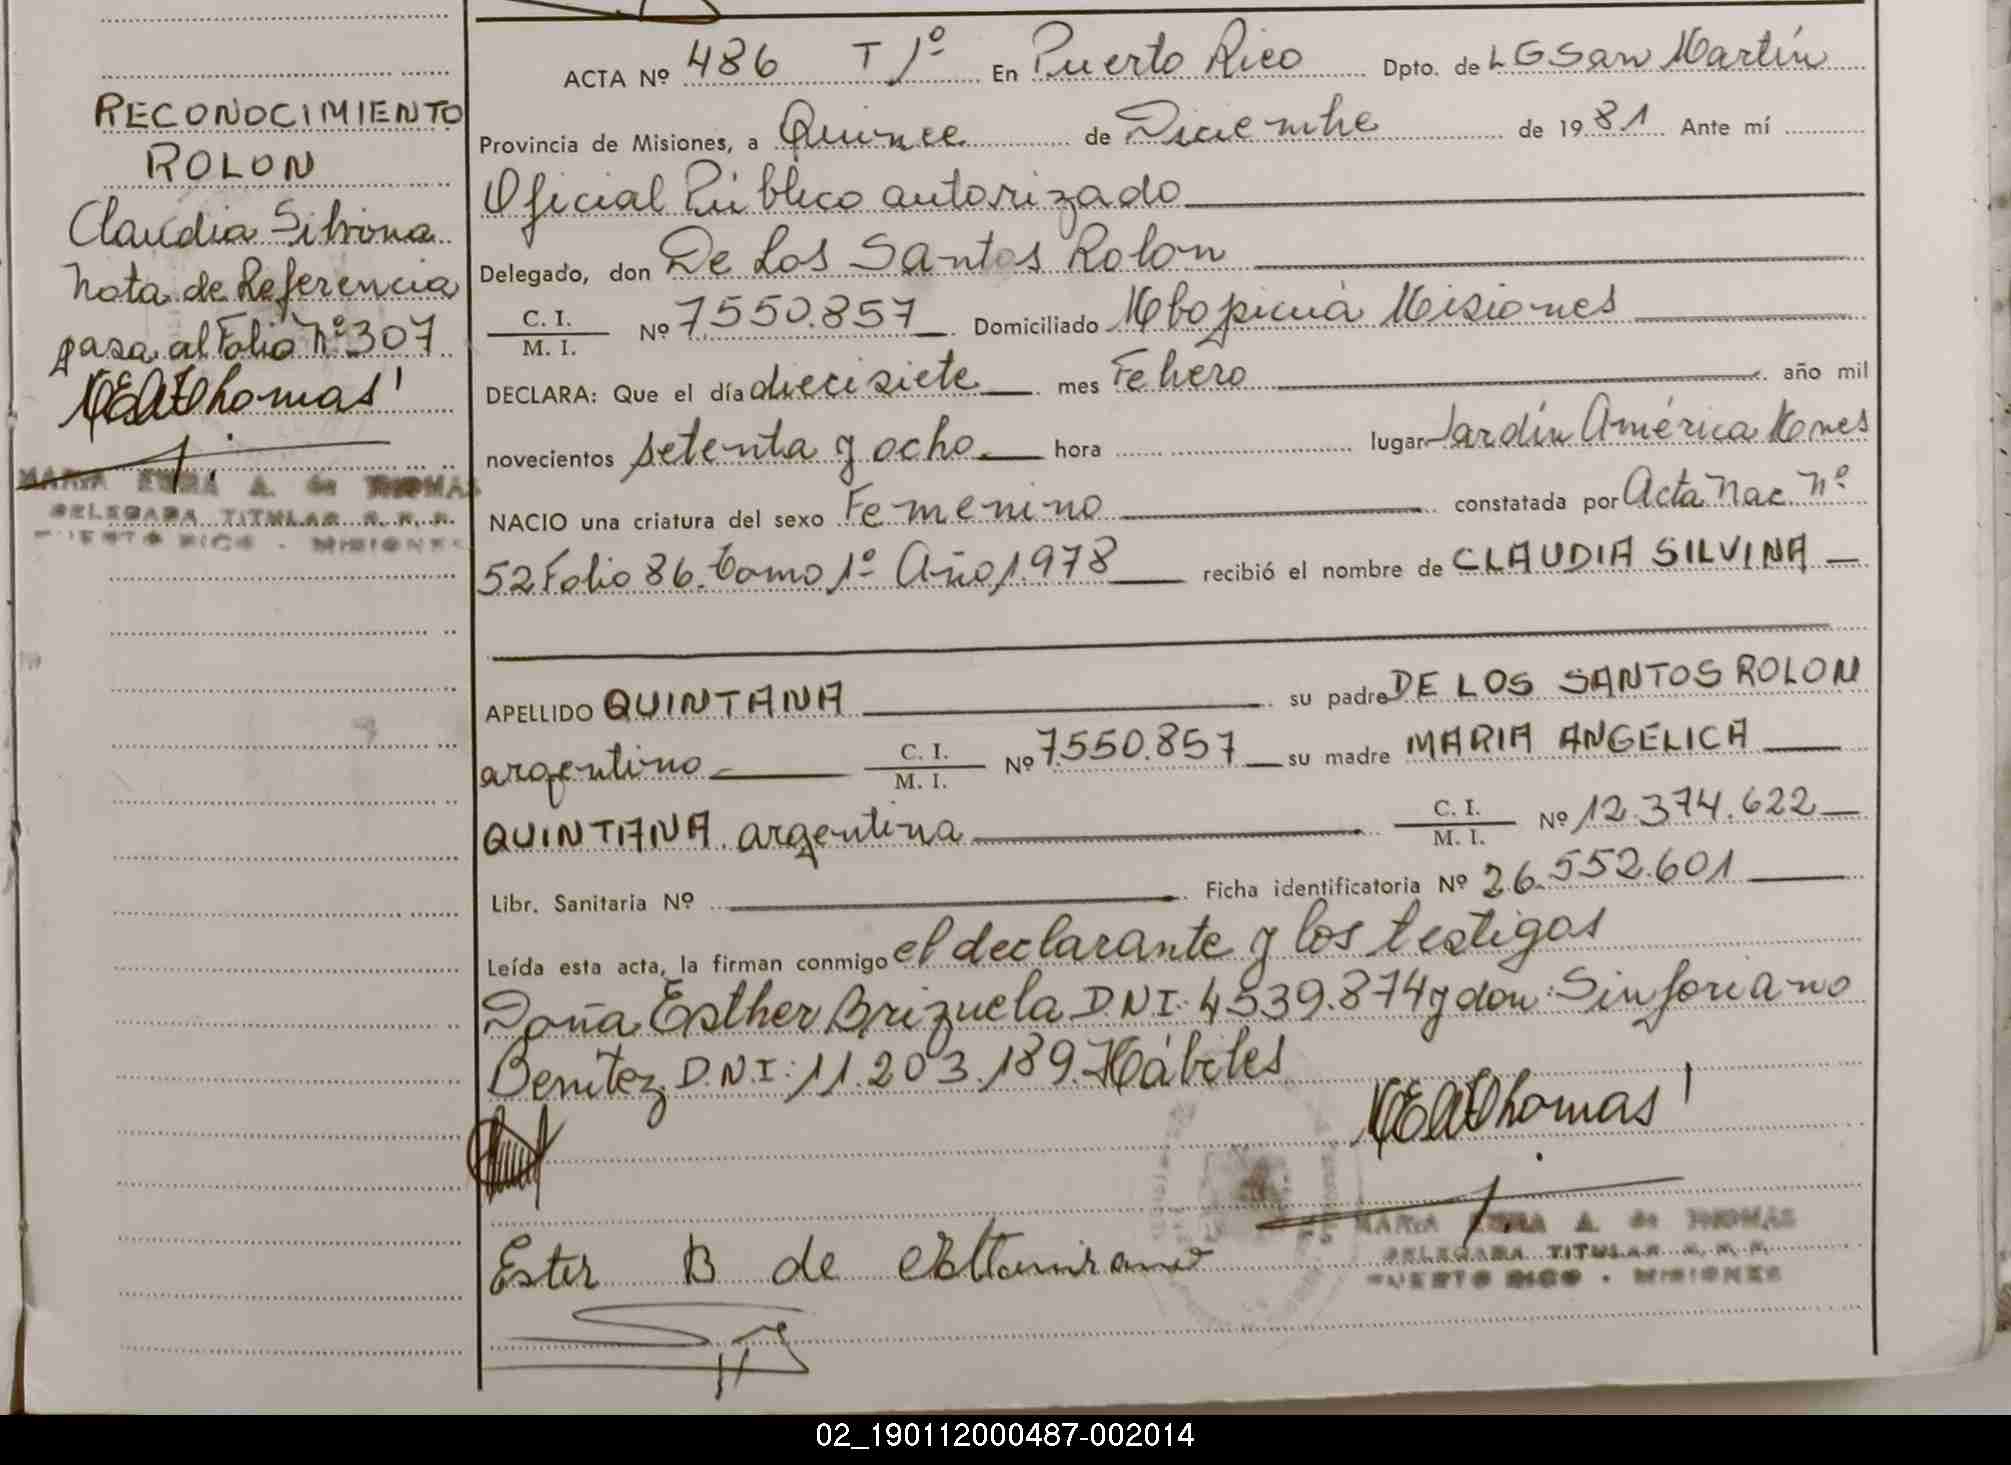 RECONOCIMIENTO
ROLON
Claudia Silvina
Nota de Referencia
pasa al Folio Nº 307
MEAThomas
MARIA ELENA A. de THOMAS
DELEGADA TITULAR R. N. P.
PUERTO RICO - MISIONES
ACTA Nº 486 T 1º En Puerto Rico Dpto. de L G San Martín
Provincia de Misiones, a Quince de Diciembre de 1981 Ante mí
Oficial Público autorizado
Delegado, don De Los Santos Rolon
C. I. / M. I. Nº 7550.857 Domiciliado Mbopicuá Misiones
DECLARA: Que el día diecisiete mes Febrero año mil
novecientos setenta y ocho hora lugar Jardín América Mones
NACIO una criatura del sexo Femenino constatada por Acta Nac Nº
52 Folio 86 Tomo 1º Año 1978 recibió el nombre de CLAUDIA SILVINA
APELLIDO QUINTANA su padre DE LOS SANTOS ROLON
argentino C. I. / M. I. Nº 7.550.857 su madre MARIA ANGÉLICA
QUINTANA argentina C. I. / M. I. Nº 12.374.622
Libr. Sanitaria Nº Ficha identificatoria Nº 26.552.601
Leída esta acta, la firman conmigo el declarante y los testigos
Doña Esther Brizuela D N I. 4539.874 y don: Sinforiano
Benitez D.N.I: 11.203.189. Hábiles
MEAThomas
Ester B de Altamirano
MARIA ELENA A. de THOMAS
DELEGADA TITULAR R. N. P.
PUERTO RICO - MISIONES
02_190112000487-002014